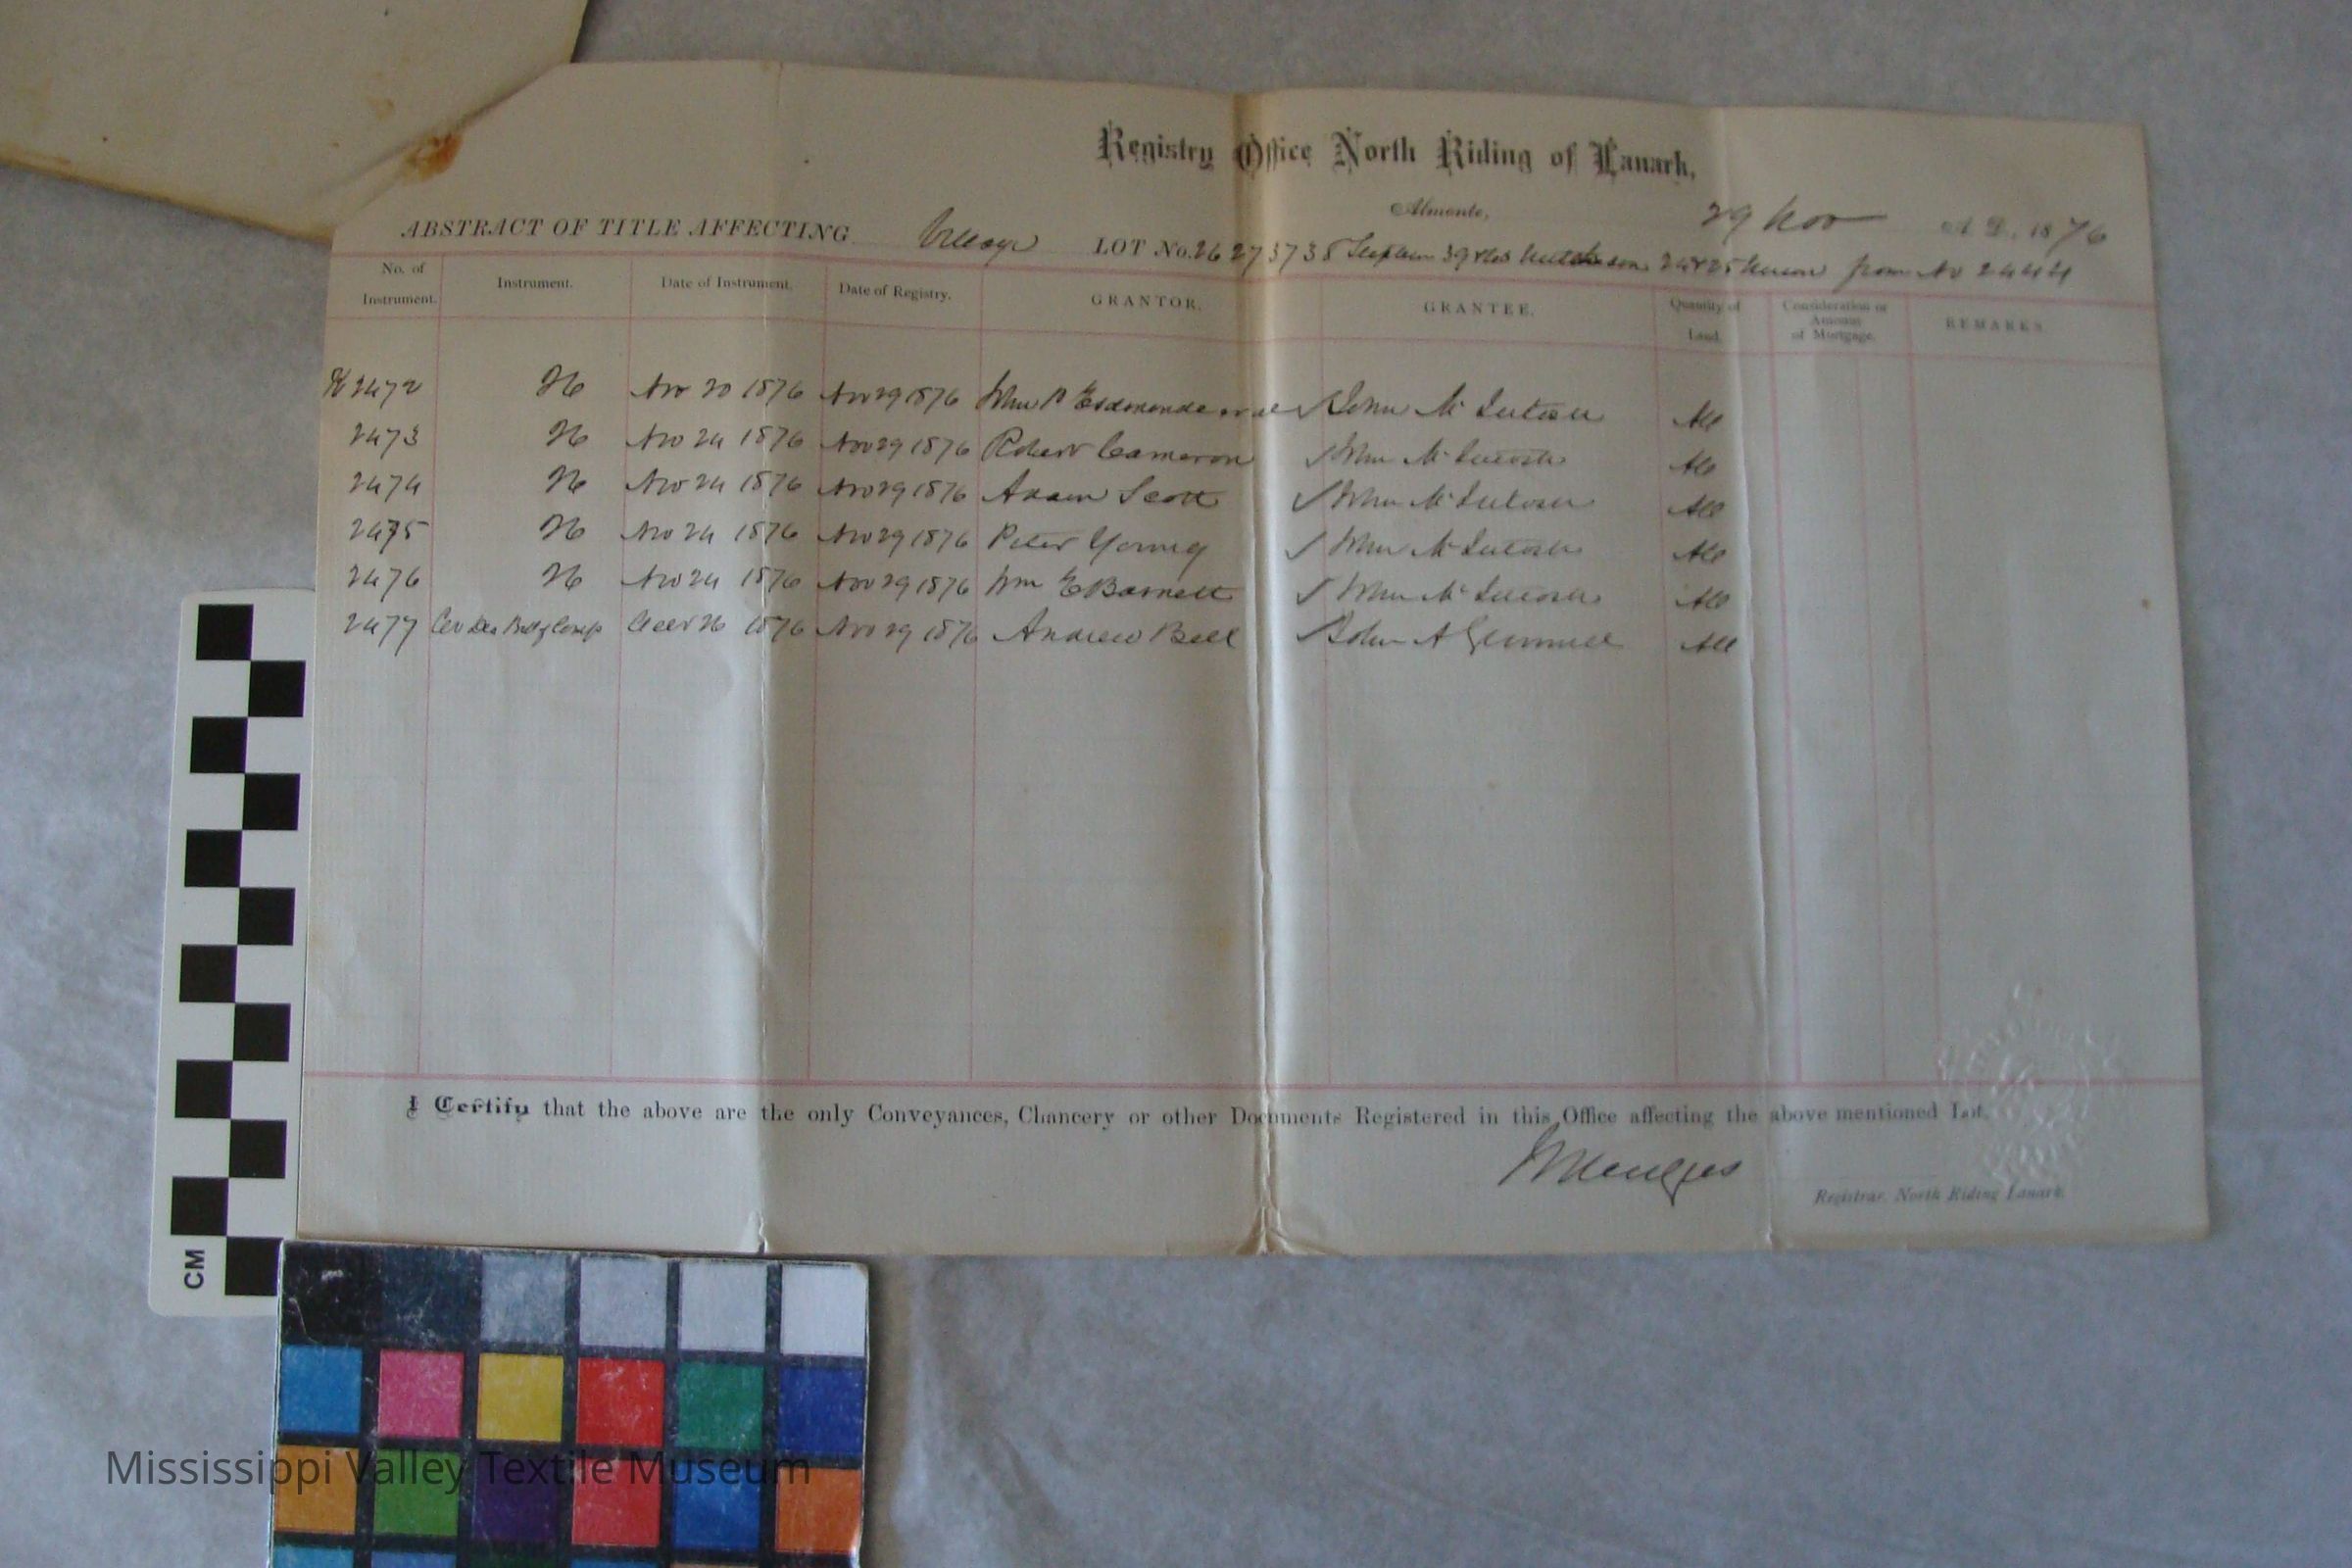 Registry Office North Riding of Lanark,
Almonte, 29 Nov A.D. 1876
ABSTRACT OF TITLE AFFECTING Village LOT No. 26 27 37 38 Stephen 39 Hutcheson 24 & 25 from No 2444
No. of Instrument. Instrument. Date of Instrument. Date of Registry. GRANTOR. GRANTEE. Quantity of Land. Consideration or Amount of Mortgage. REMARKS
2472 Nov 20 1876 Nov 29 1876 John McIntosh All
2473 Nov 24 1876 Nov 29 1876 Robert Cameron John McIntosh All
2474 Nov 24 1876 Nov 29 1876 Adam Scott John McIntosh All
2475 Nov 24 1876 Nov 29 1876 Peter Young John McIntosh All
2476 Nov 24 1876 Nov 29 1876 Wm E Barnett John McIntosh All
2477 26 1876 Nov 29 1876 Andrew Bell John A Gemmill All
I Certify that the above are the only Conveyances, Chancery or other Documents Registered in this Office affecting the above mentioned Lot.
Registrar, North Riding Lanark
CM
Mississippi Valley Textile Museum